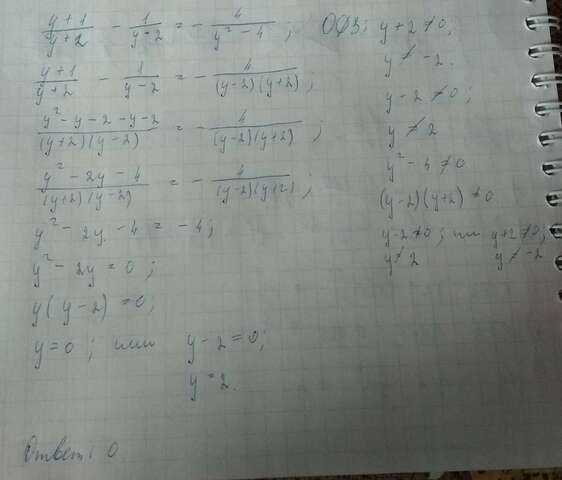 (y+1)/(y+2) - 1/(y-2) = - 4/(y² - 4) ; ОДЗ: y+2≠0;
y ≠ -2.
(y+1)/(y+2) - 1/(y-2) = - 4/((y-2)(y+2)) ;
y-2≠0;
(y²-y-2-y-2)/((y+2)(y-2)) = - 4/((y-2)(y+2)) ;
y ≠ 2
y²-4≠0
(y² - 2y - 4)/((y+2)(y-2)) = - 4/((y-2)(y+2)) ;
(y-2)(y+2)≠0
y² - 2y - 4 = -4;
y-2≠0; или y+2≠0;
y≠2 y≠-2
y² - 2y = 0 ;
y(y-2) = 0;
y=0 ; или y-2=0;
y=2.
Ответ: 0